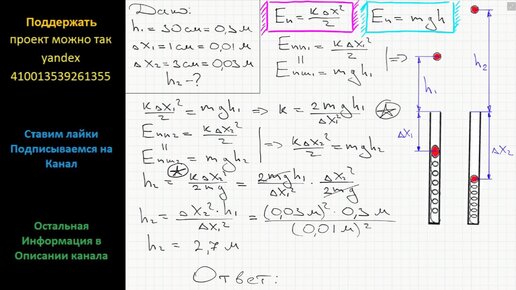 Поддержать
проект можно так
yandex
410013539261355
Ставим лайки
Подписываемся на
Канал
Остальная
Информация в
Описании канала
Дано:
h₁ = 30 см = 0,3 м
Δx₁ = 1 см = 0,01 м
Δx₂ = 3 см = 0,03 м
h₂ - ?
Eп = kΔx²/2
Eп = mgh
Eпп₁ = kΔx₁²/2
||
Eпш₁ = mgh₁
=>
kΔx₁²/2 = mgh₁ => k = 2mgh₁/Δx₁²
Eпп₂ = kΔx₂²/2
||
Eпш₂ = mgh₂
=> kΔx₂²/2 = mgh₂
h₂ = kΔx₂²/2mg = 2mgh₁/Δx₁² · Δx₂²/2mg
h₂ = Δx₂² · h₁/Δx₁² = (0,03 м)² · 0,3 м/(0,01 м)²
h₂ = 2,7 м
Ответ:
h₁
Δx₁
h₂
Δx₂